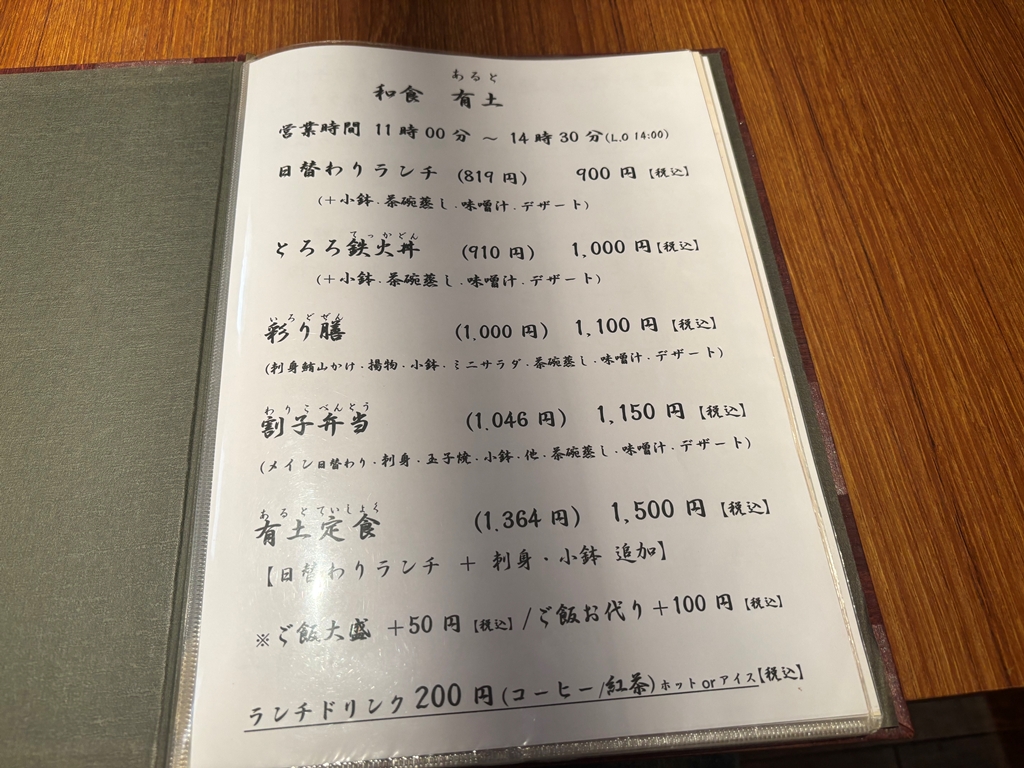 あるど
和食 有土
営業時間 11時00分 ~ 14時30分(L.O 14:00)
日替わりランチ (819円) 900円【税込】
(+小鉢.茶碗蒸し.味噌汁.デザート)
てっかどん
とろろ鉄火丼 (910円) 1,000円【税込】
(+小鉢.茶碗蒸し.味噌汁.デザート)
いろどぜん
彩り膳 (1.000円) 1,100円【税込】
(刺身鮪山かけ.揚物.小鉢.ミニサラダ.茶碗蒸し.味噌汁.デザート)
わりこべんとう
割子弁当 (1.046円) 1,150円【税込】
(メイン日替わり.刺身.玉子焼.小鉢.他.茶碗蒸し.味噌汁.デザート)
あるどていしょく
有土定食 (1.364円) 1,500円【税込】
【日替わりランチ + 刺身・小鉢 追加】
※ご飯大盛 +50円【税込】/ご飯お代り+100円【税込】
ランチドリンク200円(コーヒー/紅茶)ホットorアイス【税込】